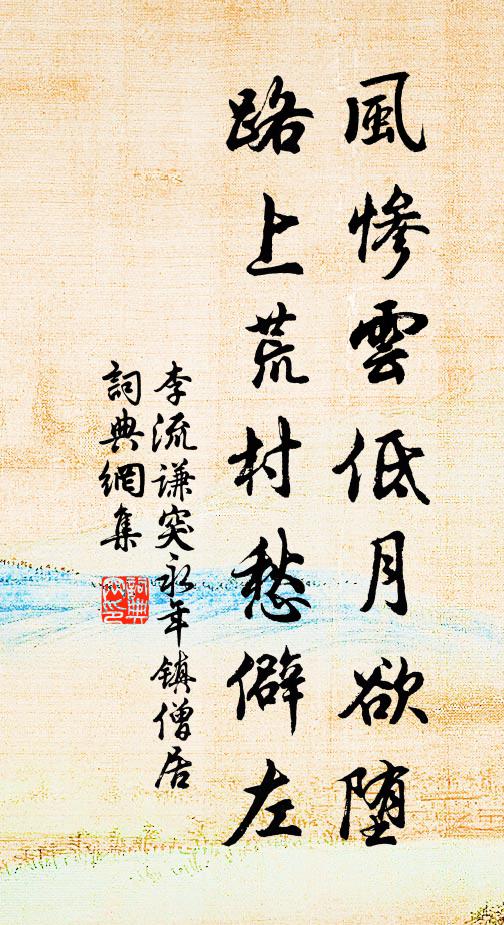 風慘雲低月欲堕
路上荒村愁僻左
李流谦突永年镇僧居
詞典網集